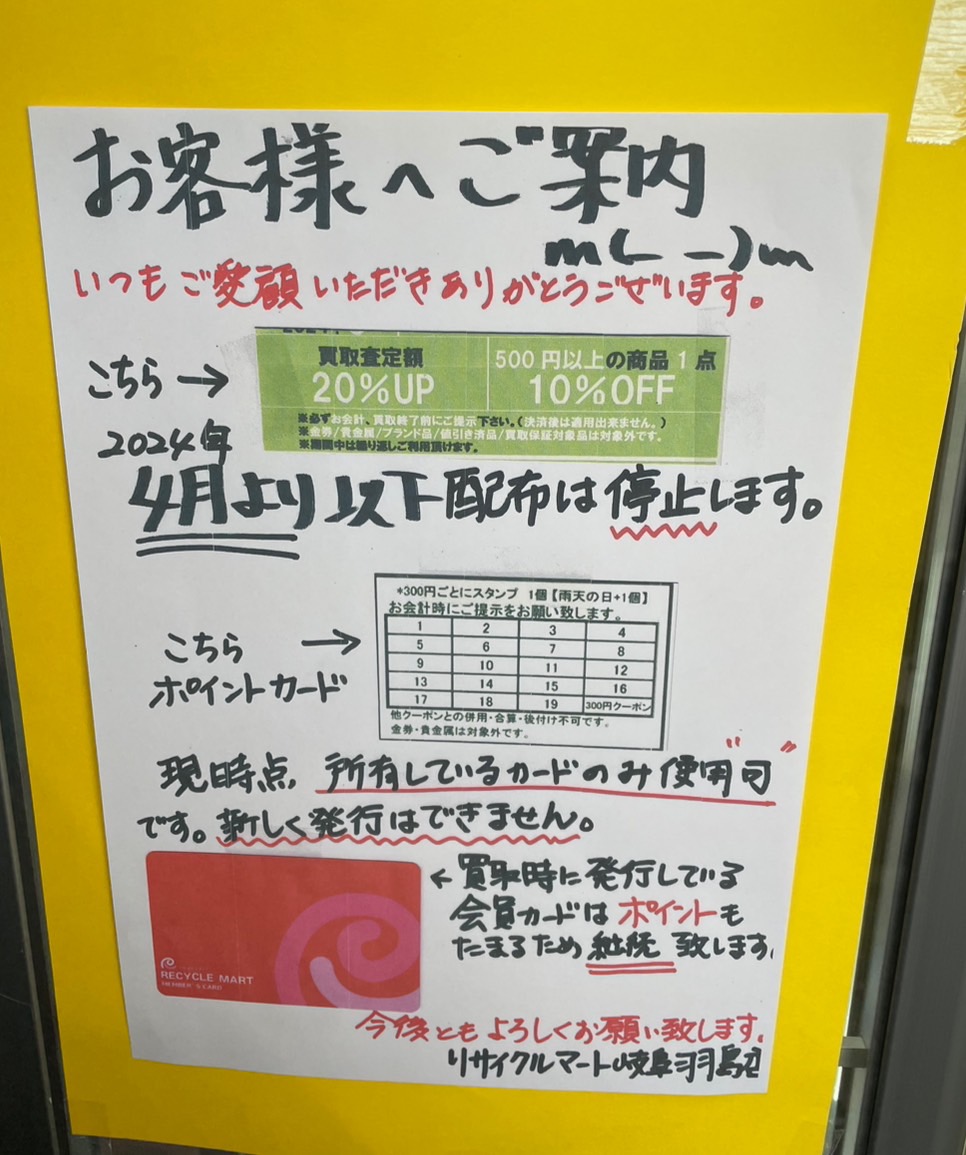 お客様へご案内
m(_ _)m
いつもご愛顧いただきありがとうございます。
こちら→
買取査定額
20%UP
500円以上の商品1点
10%OFF
※必ずお会計、買取終了前にご提示下さい。(決済後は適用出来ません。)
※金券/貴金属/ブランド品/値引き済品/買取保証対象品は対象外です。
※期間中は繰り返しご利用頂けます。
2024年
4月より以下配布は停止します。
こちら→
ポイントカード
*300円ごとにスタンプ 1個【雨天の日+1個】
お会計時にご提示をお願い致します。
1 2 3 4
5 6 7 8
9 10 11 12
13 14 15 16
17 18 19 300円クーポン
他クーポンとの併用・合算・後付け不可です。
金券・貴金属は対象外です。
現時点、所有しているカードのみ使用"可"
です。新しく発行はできません。
←買取時に発行している
会員カードはポイントも
たまるため継続致します。
RECYCLE MART
MEMBER'S CARD
今後ともよろしくお願い致します。
リサイクルマート岐阜羽島店